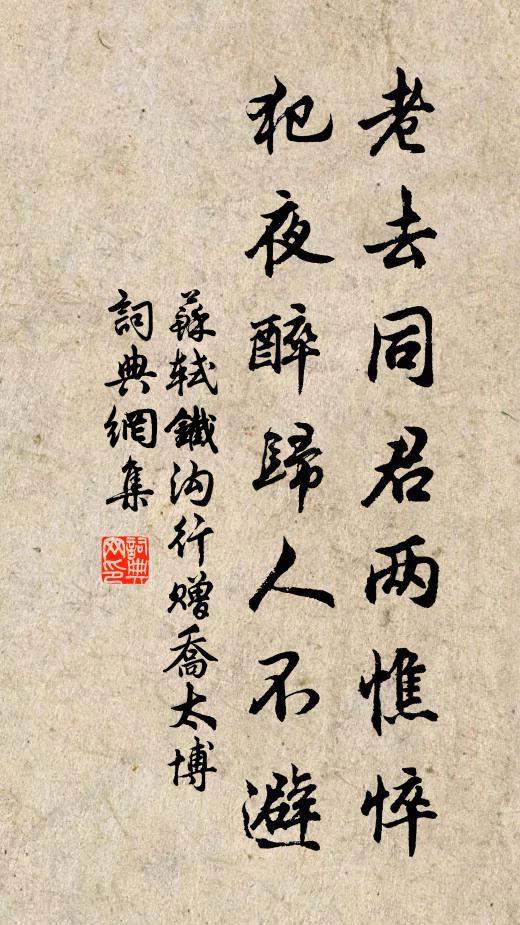 老去同君两憔悴
犯夜醉歸人不避
蘇軾鐵沟行赠喬太博
詞典網集
詞典网印